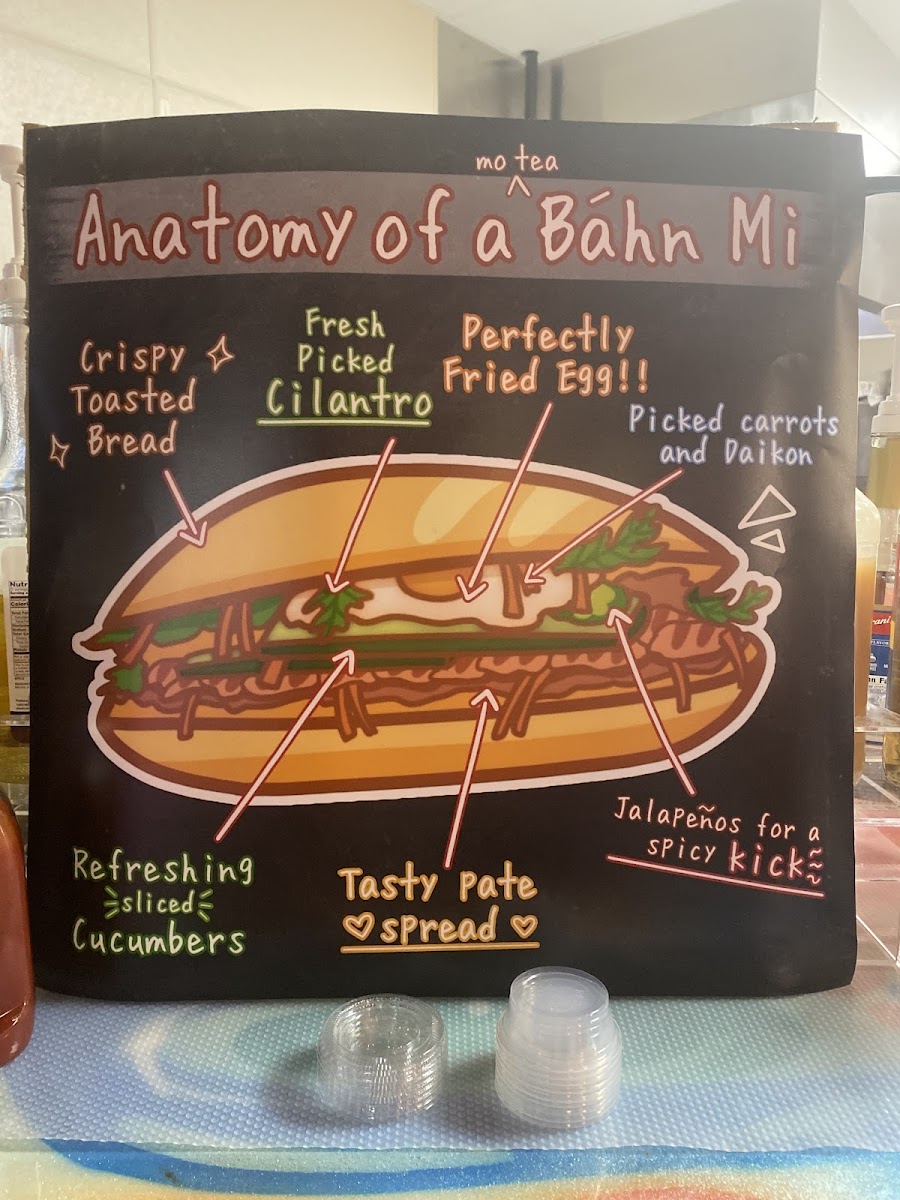 mo tea
Anatomy of a Báhn Mi
Crispy
Toasted
Bread
Fresh
Picked
Cilantro
Perfectly
Fried Egg!!
Picked carrots
and Daikon
Refreshing
sliced
Cucumbers
Tasty pate
spread
Jalapeños for a
spicy kick
Nutr